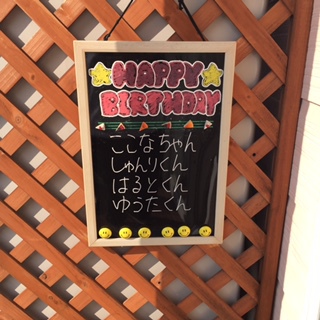 HAPPY
BIRTHDAY
ここなちゃん
しゅんりくん
はるとくん
ゆうたくん